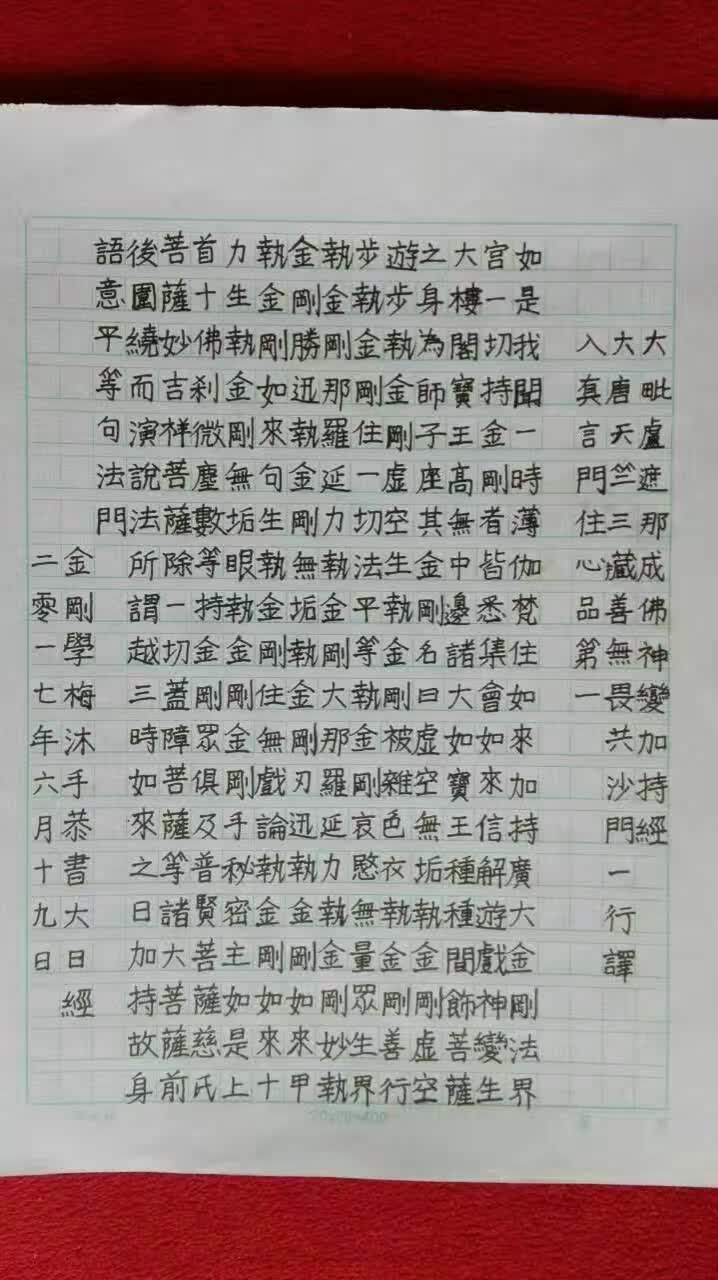 大毗盧遮那成佛神變加持經
大唐天竺三藏善無畏共沙門一行譯
入真言門住心品第一
如是我聞一時薄伽梵住如來加持廣大金剛法界
宮一切持金剛者皆悉集會如來信解遊戲神變生
大樓閣寶王高無中邊諸大如寶王種種間飾菩薩
之身為師子座其金剛名曰虛空無垢執金剛虛空
遊步執金剛虛空生金剛執金剛被雜色衣執金剛善行
步執金剛住一切法平等執金剛哀愍無量眾生界
執金剛那羅延力執金剛大那羅延力執金剛妙執
金剛勝迅執金剛無垢執金剛刃迅執金剛如來甲
執金剛如來句生執金剛住無戲論執金剛如來十
力生執金剛無垢眼執金剛金剛手秘密主如是上
首十佛剎微塵數等持金剛眾俱及普賢菩薩慈氏
菩薩妙吉祥菩薩除一切蓋障菩薩等諸大菩薩前
後圍繞而演說法所謂越三時如來之日加持故身
語意平等句法門
金剛學梅沐手恭書大日經
二零一七年六月十九日